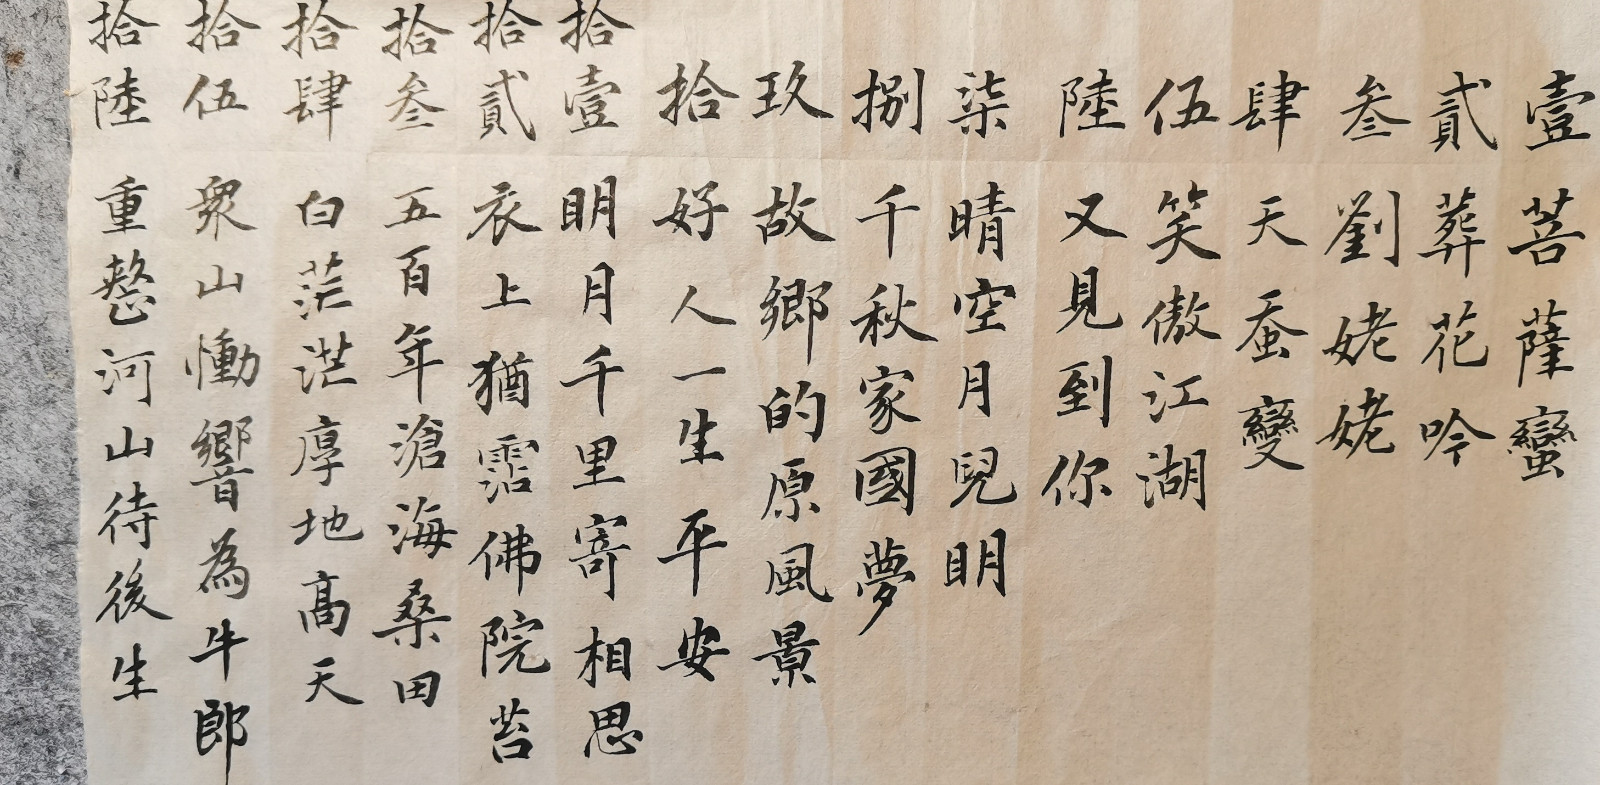 壹 菩薩蠻
貳 葬花吟
叁 劉姥姥
肆 天蚕變
伍 笑傲江湖
陸 又見到你
柒 晴空月兒明
捌 千秋家國夢
玖 故鄉的原風景
拾 好人一生平安
拾壹 明月千里寄相思
拾貳 衣上猶霑佛院苔
拾叁 五百年滄海桑田
拾肆 白茫茫厚地高天
拾伍 衆山慟響為牛郎
拾陸 重整河山待後生